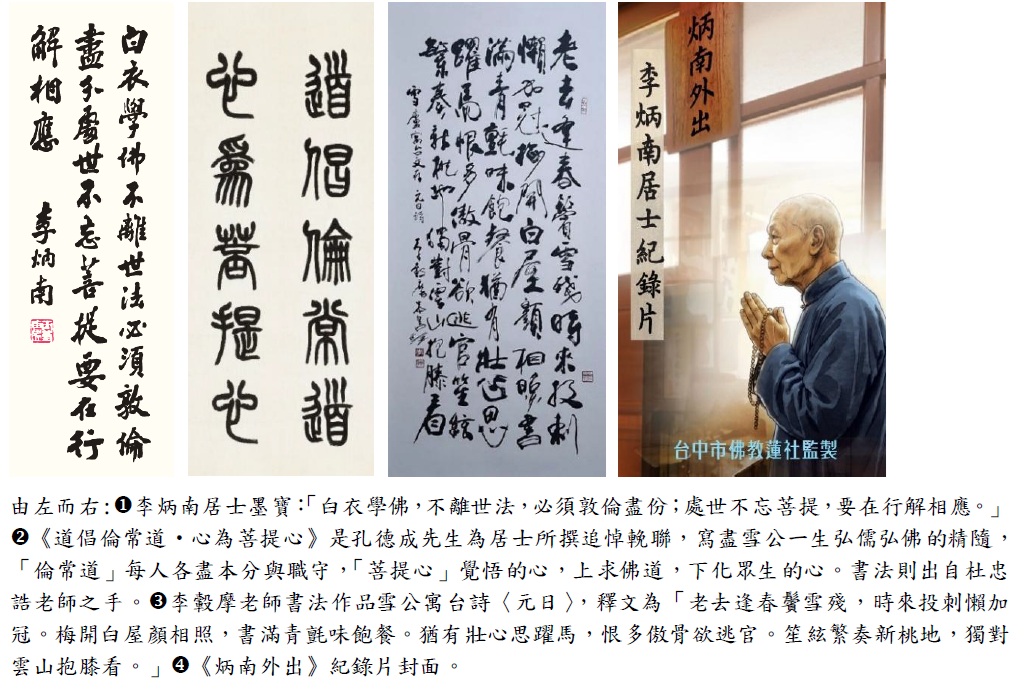 白衣學佛不離世法必須敦倫
盡分處世不忘菩提要在行
解相應　李炳南
道倡倫常道
心爲菩提心
老去逢春鬢雪殘時來投刺
懶加冠梅開白屋顏相照書
滿青氈味飽餐猶有壯心思
躍馬恨多傲骨欲逃官笙絃
繁奏新桃地獨對雲山抱膝看
雪廬寓台文存元日詩
炳南外出
李炳南居士紀錄片
台中市佛教蓮社監製
由左而右：❶李炳南居士墨寶：「白衣學佛，不離世法，必須敦倫盡份；處世不忘菩提，要在行解相應。」
❷《道倡倫常道・心為菩提心》是孔德成先生為居士所撰追悼輓聯，寫盡雪公一生弘儒弘佛的精隨，
「倫常道」每人各盡本分與職守，「菩提心」覺悟的心，上求佛道，下化眾生的心。書法則出自杜忠
誥老師之手。❸李轂摩老師書法作品雪公寓台詩〈元日〉，釋文為「老去逢春鬢雪殘，時來投刺懶加
冠。梅開白屋顏相照，書滿青氈味飽餐。猶有壯心思躍馬，恨多傲骨欲逃官。笙絃繁奏新桃地，獨對
雲山抱膝看。」❹《炳南外出》紀錄片封面。